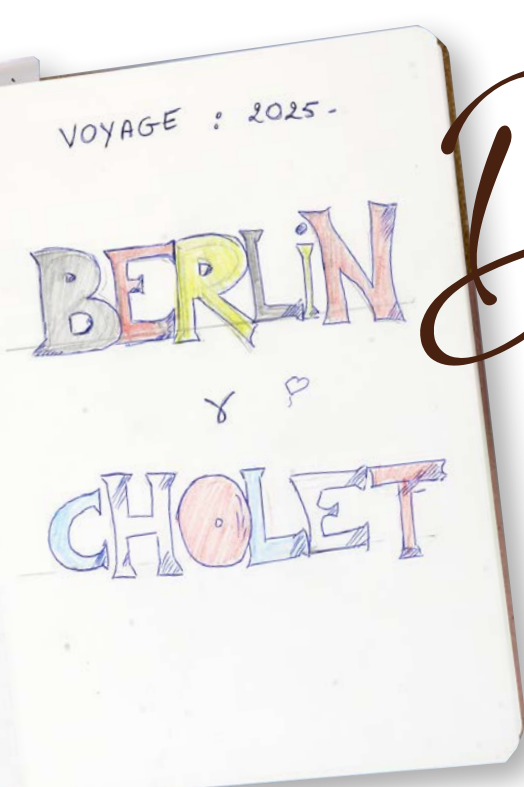 VOYAGE : 2025-
BERLiN
CHOLET